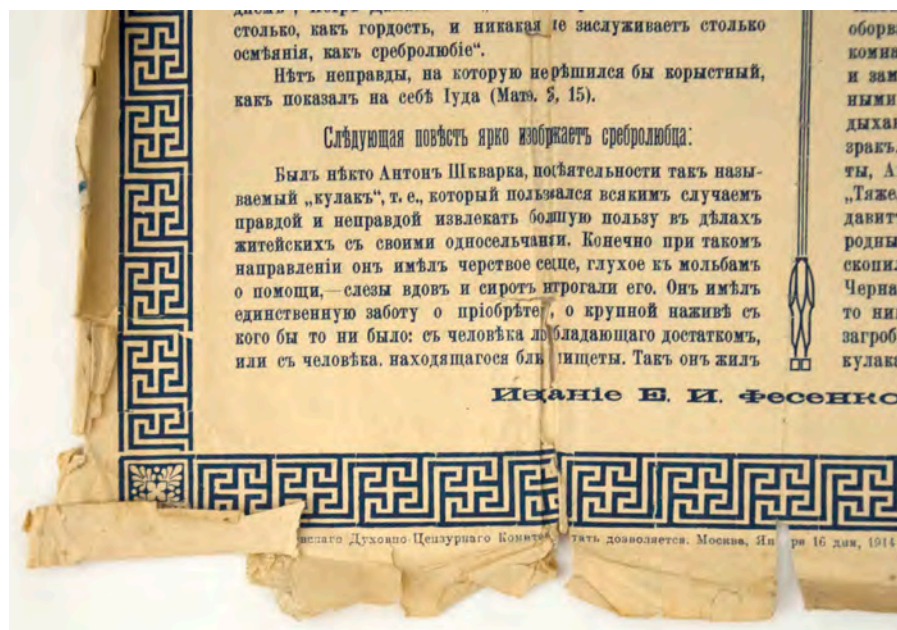 столько, какъ гордость, и никакая не заслуживаетъ столько
осмѣянія, какъ сребролюбіе“.
Нѣтъ неправды, на которую не рѣшился бы корыстный,
какъ показалъ на себѣ Іуда (Матѳ. 15).
Слѣдующая повѣсть ярко изображаетъ сребролюбца:
Былъ нѣкто Антонъ Шкварка, по дѣятельности такъ назы-
ваемый „кулакъ“, т. е., который пользовался всякимъ случаемъ
правдой и неправдой извлекать большую пользу въ дѣлахъ
житейскихъ съ своими односельчанами. Конечно при такомъ
направленіи онъ имѣлъ черствое сердце, глухое къ мольбамъ
о помощи,—слезы вдовъ и сиротъ не трогали его. Онъ имѣлъ
единственную заботу о пріобрѣте, о крупной наживѣ съ
кого бы то ни было: съ человѣка ли обладающаго достаткомъ,
или съ человѣка. находящагося близь нищеты. Такъ онъ жилъ
оборв
комна
и зам
ными
дыхан
зракъ.
ты, А
„Тяже
давитъ
родны
скопил
Черна
то ни
загроб
кулака
Изданіе Е. И. Фесенко
Духовно-Цензурнаго Комитета печатать дозволяется. Москва, Января 16 дня, 1914